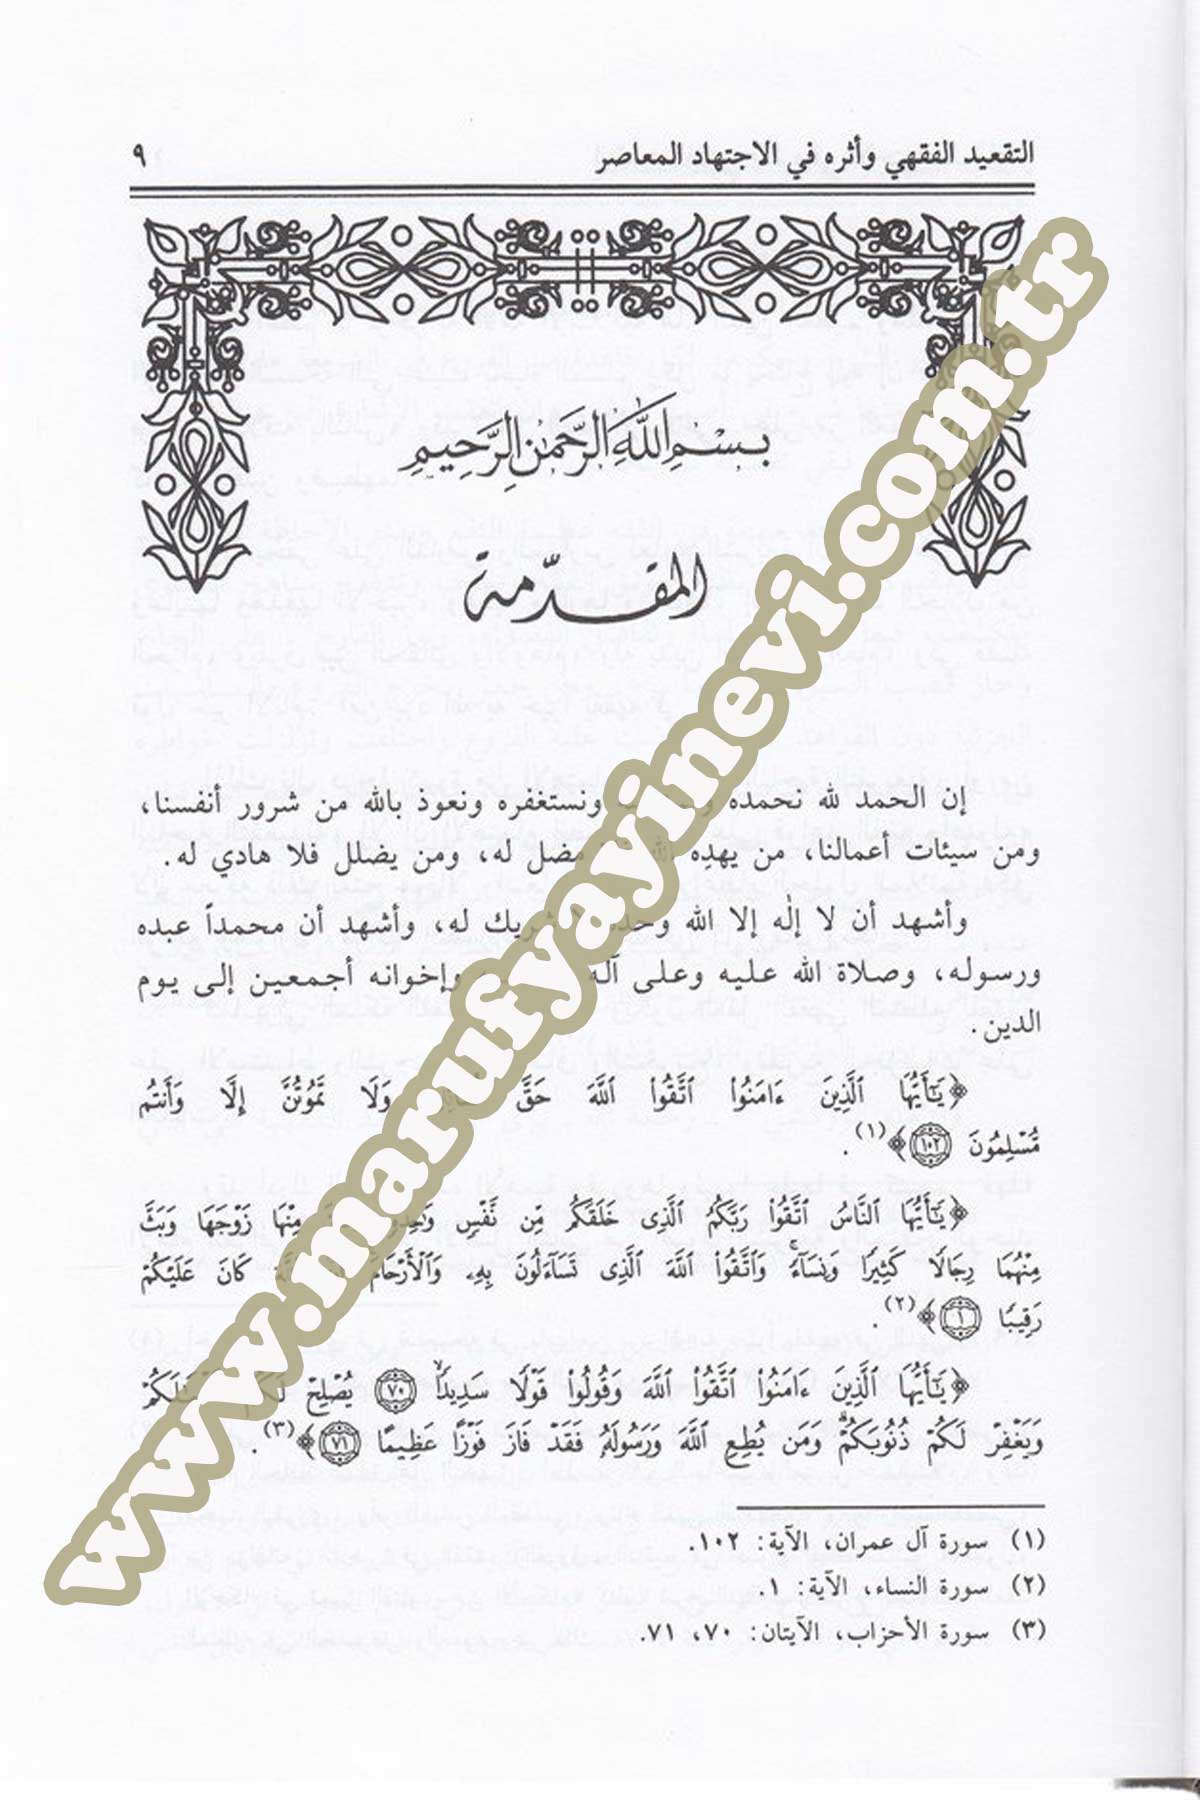 التقعيد الفقهي وأثره في الاجتهاد المعاصر ٩
بِسْمِ اللَّهِ الرَّحْمَٰنِ الرَّحِيمِ
المقدّمة
إن الحمد لله نحمده ونستغفره ونعوذ بالله من شرور أنفسنا،
ومن سيئات أعمالنا، من يهدِه الله مضل له، ومن يضلل فلا هادي له.
وأشهد أن لا إلٰه إلا الله وحده لا شريك له، وأشهد أن محمداً عبده
ورسوله، وصلاة الله عليه وعلى آله وإخوانه أجمعين إلى يوم
الدين.
﴿يَٰٓأَيُّهَا ٱلَّذِينَ ءَامَنُوا۟ ٱتَّقُوا۟ ٱللَّهَ حَقَّ وَلَا تَمُوتُنَّ إِلَّا وَأَنتُم
مُّسْلِمُونَ ١٠٢﴾(١).
﴿يَٰٓأَيُّهَا ٱلنَّاسُ ٱتَّقُوا۟ رَبَّكُمُ ٱلَّذِى خَلَقَكُم مِّن نَّفْسٍ وَٰحِدَةٍ مِنْهَا زَوْجَهَا وَبَثَّ
مِنْهُمَا رِجَالًا كَثِيرًا وَنِسَآءً ۚ وَٱتَّقُوا۟ ٱللَّهَ ٱلَّذِى تَسَآءَلُونَ بِهِۦ وَٱلْأَرْحَامَ كَانَ عَلَيْكُمْ
رَقِيبًا ١﴾(٢).
﴿يَٰٓأَيُّهَا ٱلَّذِينَ ءَامَنُوا۟ ٱتَّقُوا۟ ٱللَّهَ وَقُولُوا۟ قَوْلًا سَدِيدًا ٧٠ يُصْلِحْ لَكُمْ أَعْمَٰلَكُمْ
وَيَغْفِرْ لَكُمْ ذُنُوبَكُمْ ۗ وَمَن يُطِعِ ٱللَّهَ وَرَسُولَهُۥ فَقَدْ فَازَ فَوْزًا عَظِيمًا ٧١﴾(٣).
(١) سورة آل عمران، الآية: ١٠٢.
(٢) سورة النساء، الآية: ١.
(٣) سورة الأحزاب، الآيتان: ٧٠، ٧١.
www.marufyayinevi.com.tr